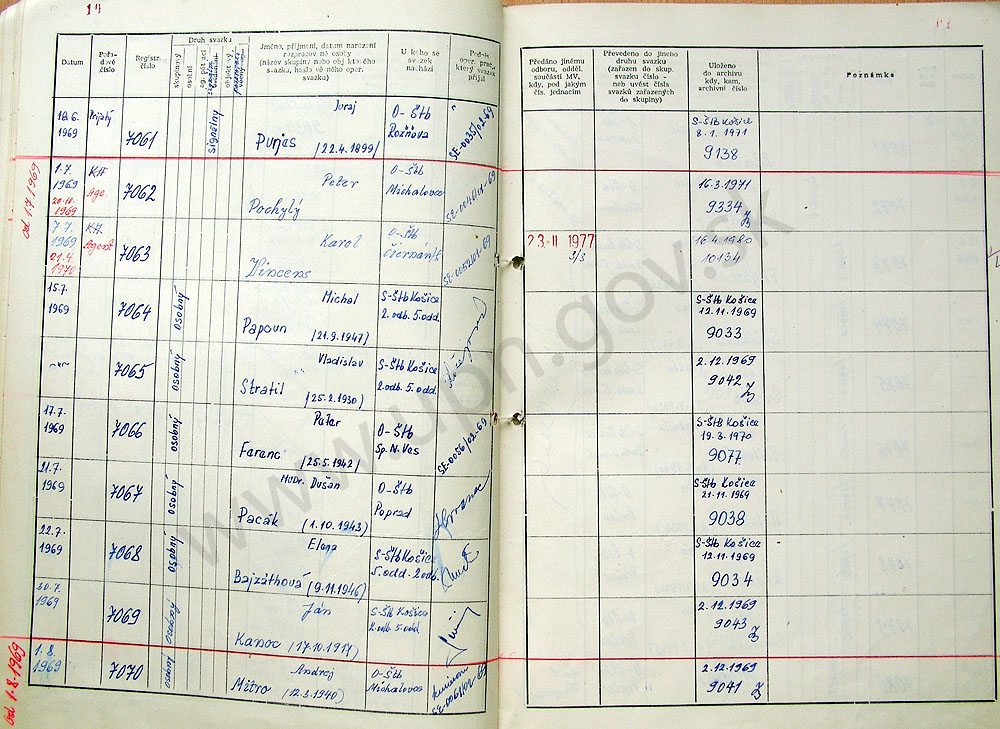 14
Datum
Pořadové číslo
Registr. číslo
Druh svazku
skupinový
osobní
Jméno, příjmení, datum narození
rozpracov né osoby
(název skupiny nebo obj kto čího
svazku, heslo vé něho oper.
svazku)
U keho se
svazek
nachází
oper. prac.,
který svazek
přijal
Předáno jinému
odboru, odděl.
součásti MV,
kdy, pod jakým
čís. jednacím
Převedeno do jiného
druhu svazku
(zařazen do skup
svazku číslo -
neb uvést čísla
svazků zařazených
do skupiny)
Uloženo
do archivu
kdy, kam,
archivní číslo
Poznámka
18.6.
1969
Prijatý
7061
signélny
Juraj
Purjas
/22.4.1899/
O-Štb
Rožňava
SE-0035/02-69
S-ŠtB Košice
8.1.1971
9138
od 1.7.1969
1.7.
1969
20.10.
1969
KH
Age.
7062
Peter
Pochylý
O-Štb
Michalovce
16.3.1971
9334
7.7.
1969
21.4.
1970
KH.
Agent
7063
Karol
Vincens
O-Štb
23 II 1977
3/3
16.4.1980
10134
15.7.
1969
7064
osobný
Michal
Papoun
/21.9.1947/
S-Štb Košice
2.odb. 5.odd.
S-Štb Košice
12.11.1969
9033
7065
osobný
Vladislav
Stratil
/25.2.1930/
S-Štb Košice
2.odb. 5.odd.
2.12.1969
9042
17.7.
1969
7066
osobný
Peter
Farenc
/25.5.1942/
O-Štb
Sp.N.Ves
SE-0056/02-69
S-ŠtB Košice
19.3.1970
9077
21.7.
1969
7067
osobný
MUDr. Dušan
Pacák
(1.10.1943)
O-Štb
Poprad
S-Štb Košice
21.11.1969
9038
22.7.
1969
7068
osobný
Elena
Bajzáthová (9.11.1946)
S-Štb Košice
5.odd.-2.odb.
S-Štb Košice
12.11.1969
9034
30.7.
1969
7069
osobný
Ján
Kanoc (17.10.1917)
S-Štb Košice
2.odb 5.odd
2.12.1969
9043
od 1.8.1969
1.8.
1969
7070
osobný
Andrej
Mitro (12.3.1940)
O-Štb
Michalovce
SE-0061/02-69
2.12.1969
9041
www.upn.gov.sk